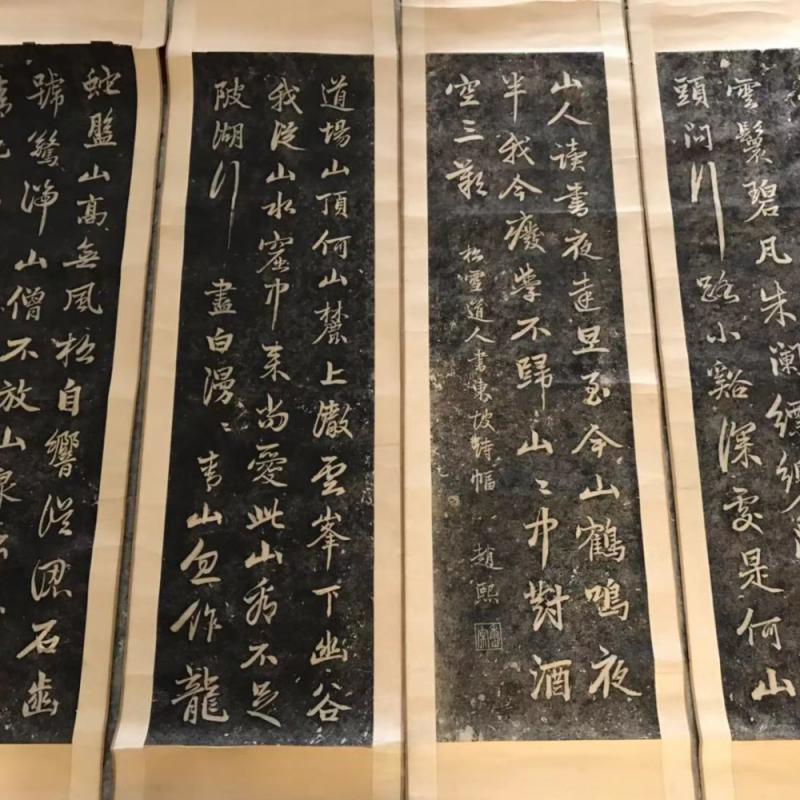 雲鬟碧瓦朱闌縹緲間
頭問行路小谿深處是何山
山人讀書夜達旦至今山鶴鳴夜
半我今廢學不歸山〻中對酒
空三歎
松雪道人書東坡詩幅 趙熙
道場山頂何山麓上徹雲峯下幽谷
我從山水窟中來尚愛此山看不足
陂湖行盡白漫〻青山忽作龍
蛇盤山高無風松自響誤認石齒
號驚湍山僧不放山泉出